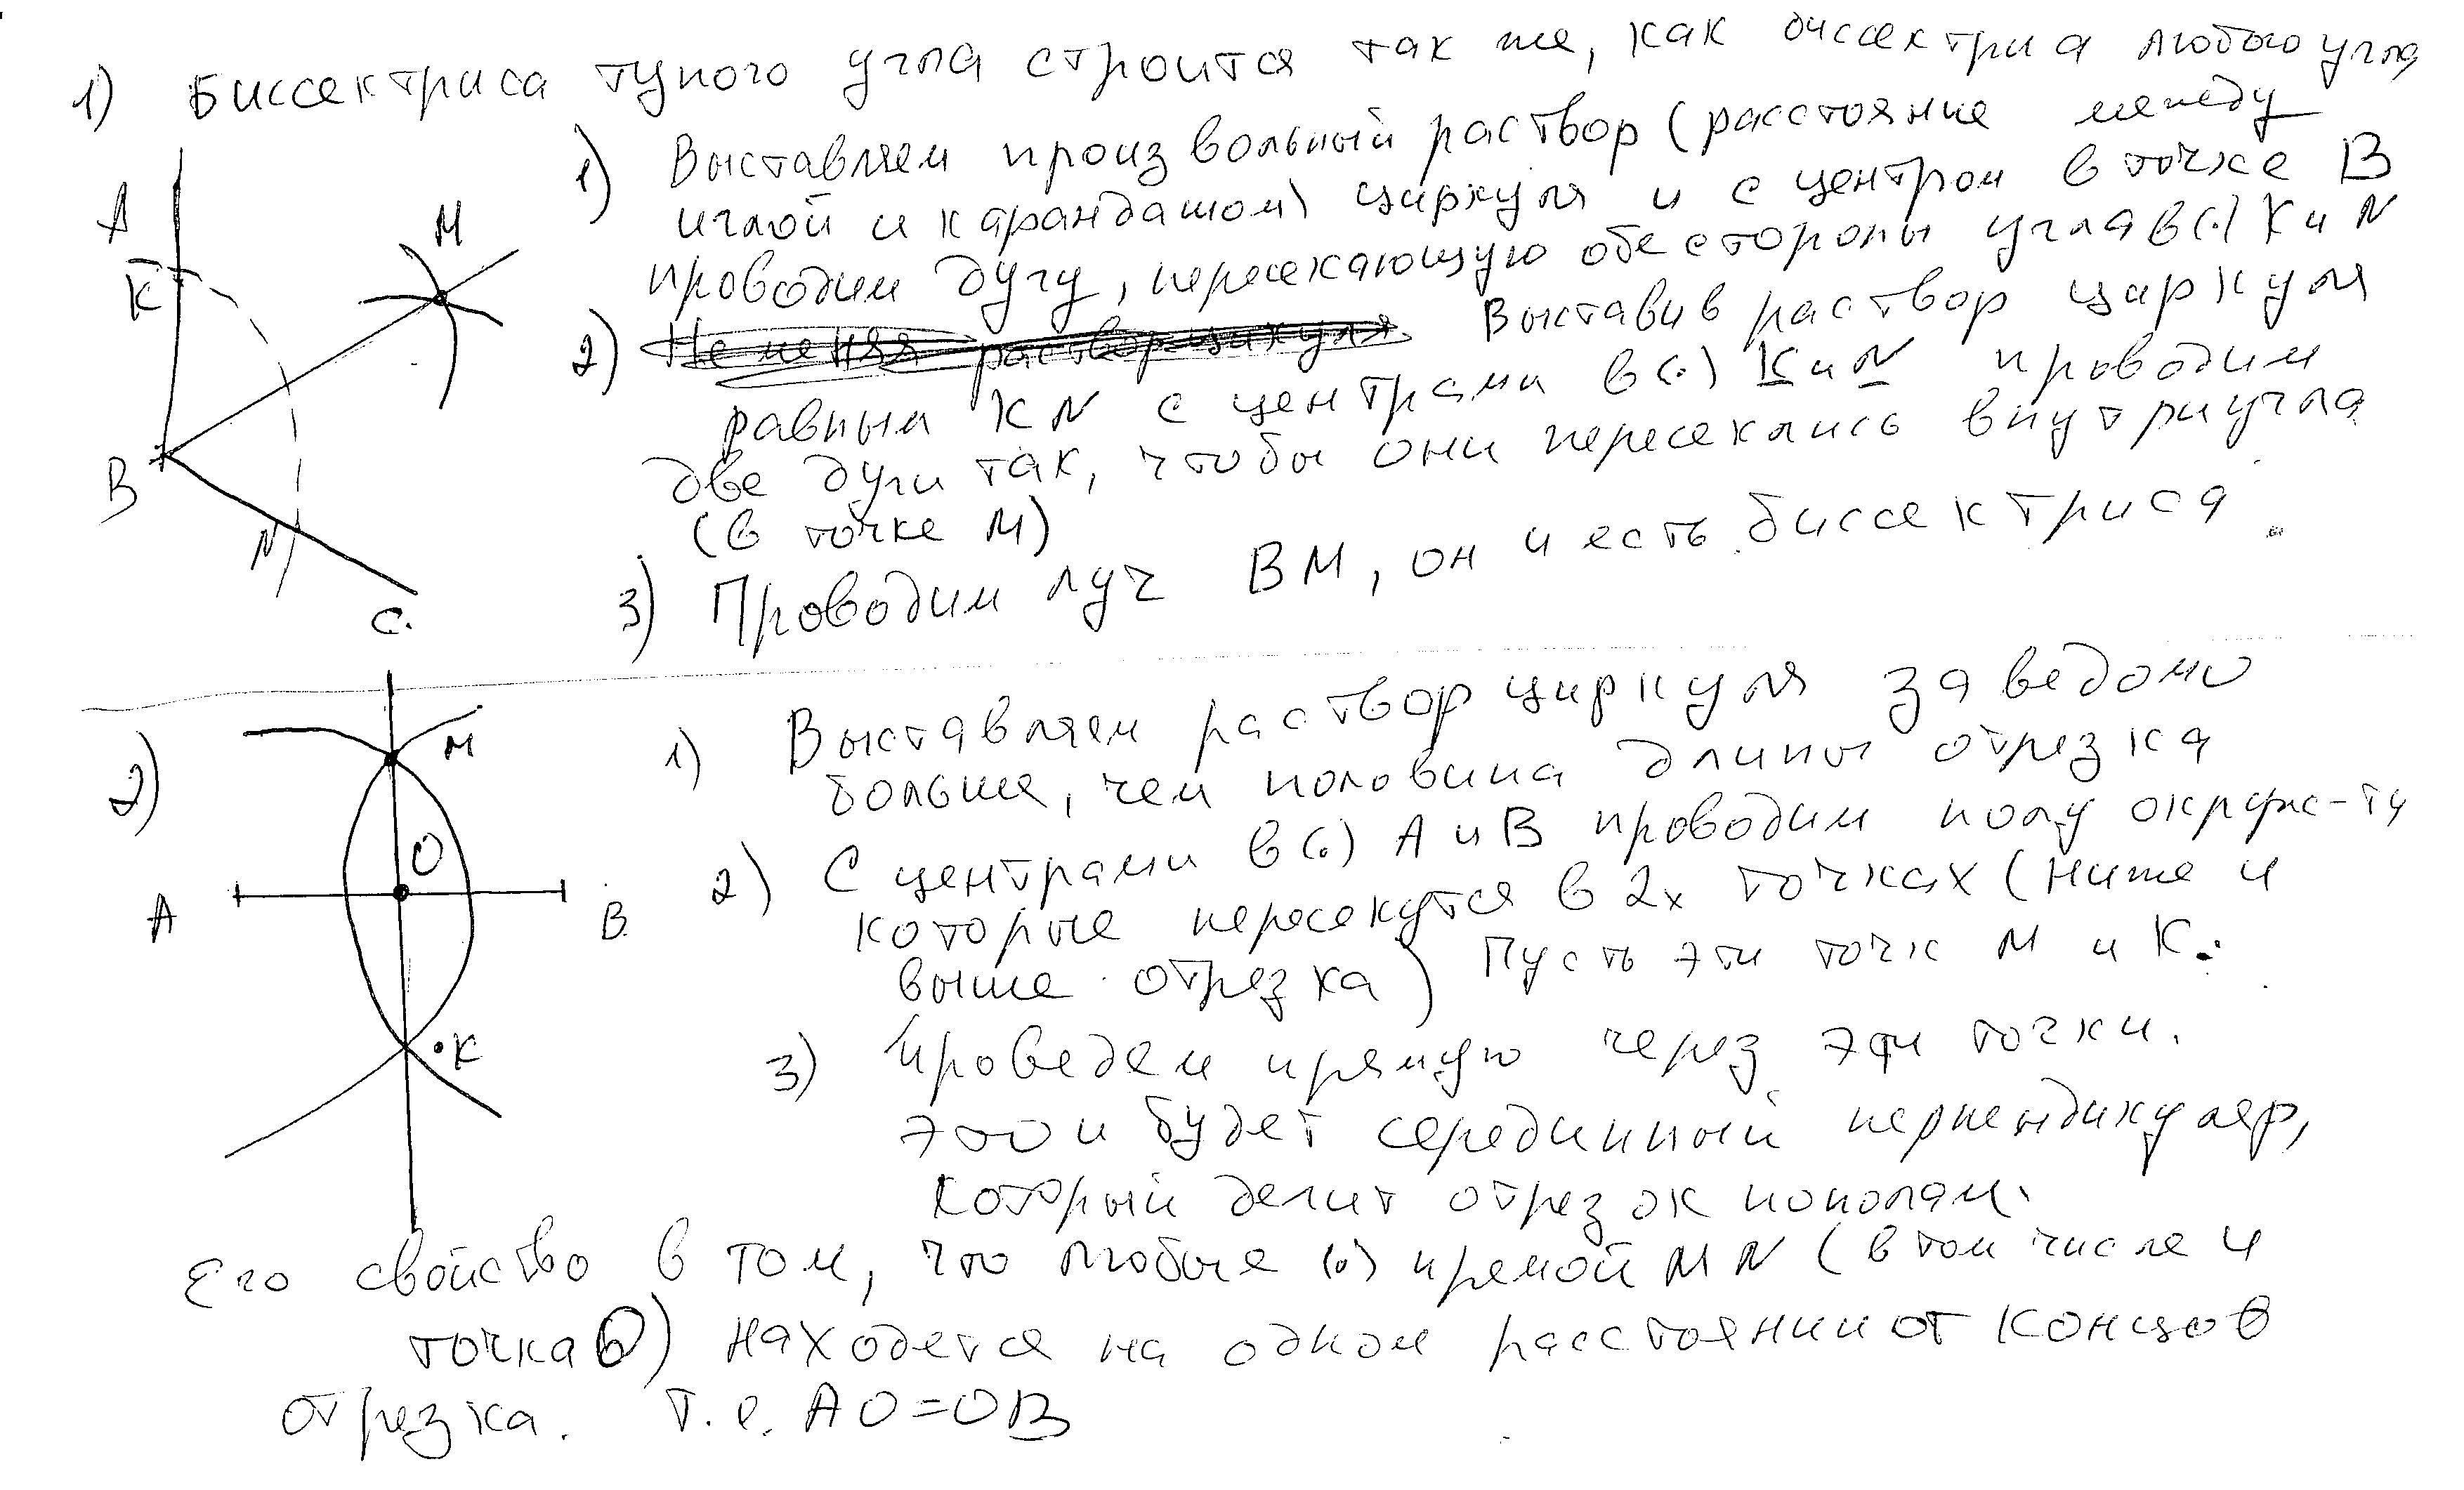 1) Биссектриса тупого угла строится так же, как биссектриа любого угла,
1) Выставляем произвольный раствор (расстояние между
иглой и карандашом) циркуля и с центром в точке В
проводим дугу, пересекающую обе стороны угла в (.) К и N
2) Не меняя раствор цикуля Выставив раствор циркуля
равным KN с центрами в (.) К и N проводим
две дуги так, чтобы они пересеклись внутри угла
(в точке М)
3) Проводим луч ВМ, он и есть биссектриса.
A
K
M
B
N
C.
2)
1) Выставляем раствор циркуля заведомо
больше, чем половина длины отрезка
2) С центрами в (.) А и В проводим полуокруж-ти
которые пересекутся в 2х точках (Ниже и
выше отрезка) Пусть эти точк М и К.
3) Проведем прямую через эти точки.
Это и будет серединный перпендикуляр,
который делит отрезок пополам.
M
O
A
B.
K
Его свойство в том, что любые (.) прямой MN (в том числе и
точка О) находется на одном расстоянии от концов
отрезка. т.е. АО=ОВ